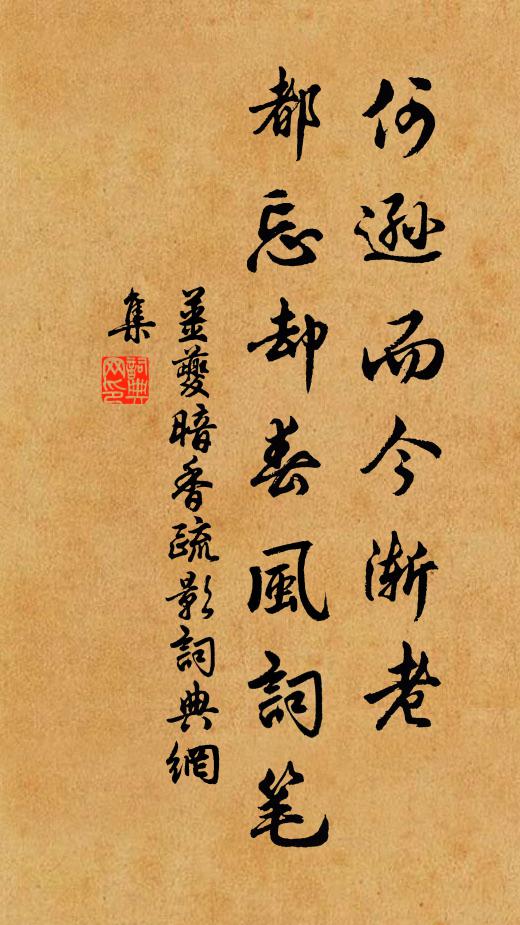 何遜而今漸老
都忘却春風詞笔
薑夔暗香疏影詞典網
集
詞典网印